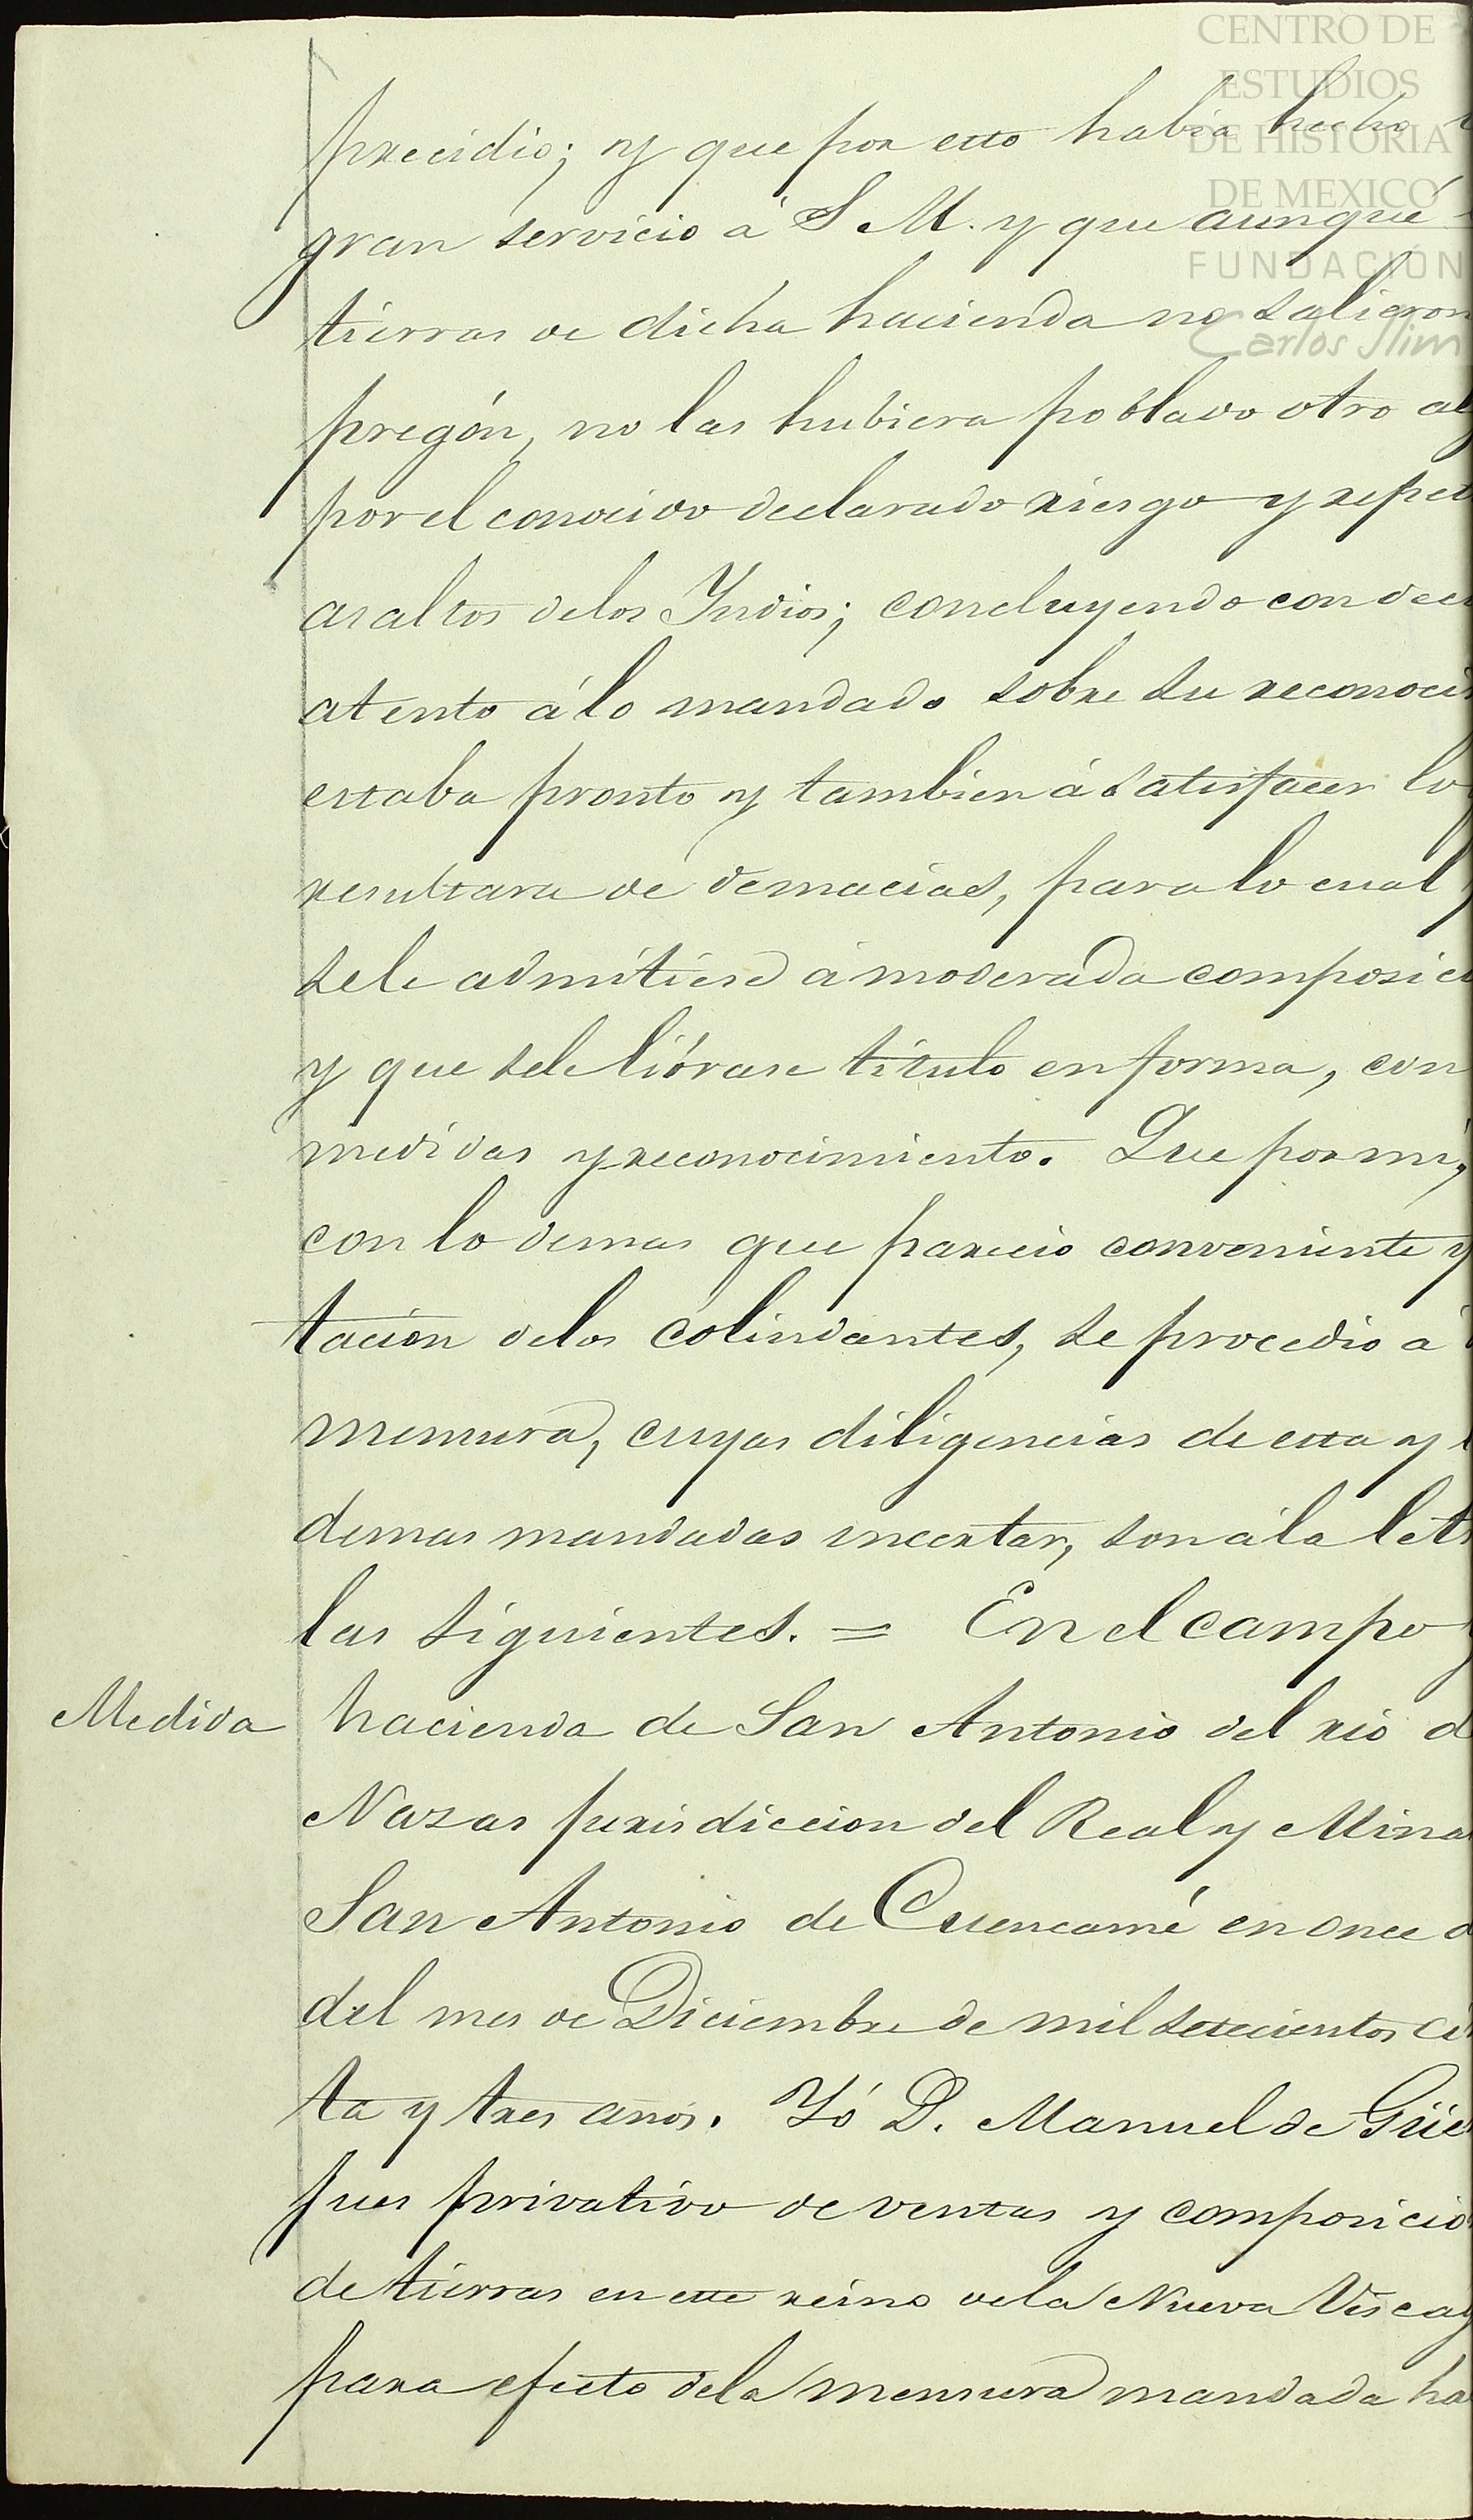 CENTRO DE
ESTUDIOS
DE HISTORIA
DE MEXICO
FUNDACIÓN
Carlos Slim
precidio; y que por esto habia hecho
gran servicio á S M. y que aunque
tierras de dicha hacienda no salieron
pregón, no las hubiera poblado otro al
por el conocido declarado riesgo y repet
asaltos delos Yndios; concluyendo con deci
atento á lo mandado sobre su reconoci
estaba pronto y tambien á satisfacer lo
resultara de demacias, para lo cual
sele admitiese á moderada composici
y que sele librase titulo en forma, con
medidas y reconocimiento. Que por mi,
con lo demas que parecio conveniente y
tacion delos colindantes, se procedio á
mensura, cuyas diligencias de esta y
demas mandadas incertar, son á la let
las siguientes. = En el campo
Medida hacienda de San Antonio del rio d
Nazas jurisdiccion del Real y Mina
San Antonio de Cuencamé en once d
del mes de Diciembre de mil setecientos ci
ta y tres años. Yó D. Manuel de Güe
jues privativo de ventas y composicio
de tierras en este reino dela Nueva Viscay
para efecto dela mensura mandada ha